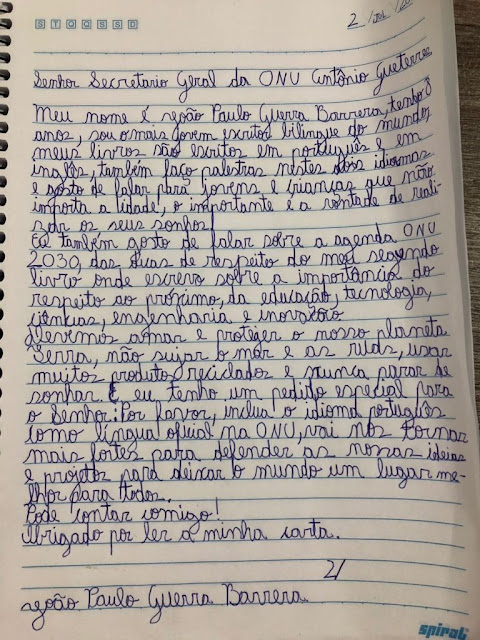 S T Q Q S S D
2
Senhor Secretario Geral da ONU Antônio Gueterres
Meu nome é João Paulo Guerra Barrera, tenho 8
anos, sou o mais jovem escritor bilingue do mundo,
meus livros são escritos em português e em
inglês, também faço palestras nestes dois idiomas
e gosto de falar para jovens e crianças que não
importa a idade, o importante é a vontade de reali-
zar os seus sonhos.
Eu também gosto de falar sobre a agenda ONU
2030, das duas de respeito do meu segundo
livro onde escrevo sobre a importância do
respeito ao próximo, da educação, tecnologia,
ciências, engenharia e inovação
Devemos amar e proteger o nosso planeta
Terra, não sujar o mar e as ruas, usar
muitos produtos reciclados e nunca parar de
sonhar. E eu tenho um pedido especial para
o Senhor: Por favor, inclua o idioma português
como língua oficial na ONU, vai nos tornar
mais fortes para defender as nossas ideias
e projetos para deixar o mundo um lugar me-
lhor para todos.
Pode contar comigo!
Obrigado por ler a minha carta.
2/
João Paulo Guerra Barrera
spiral